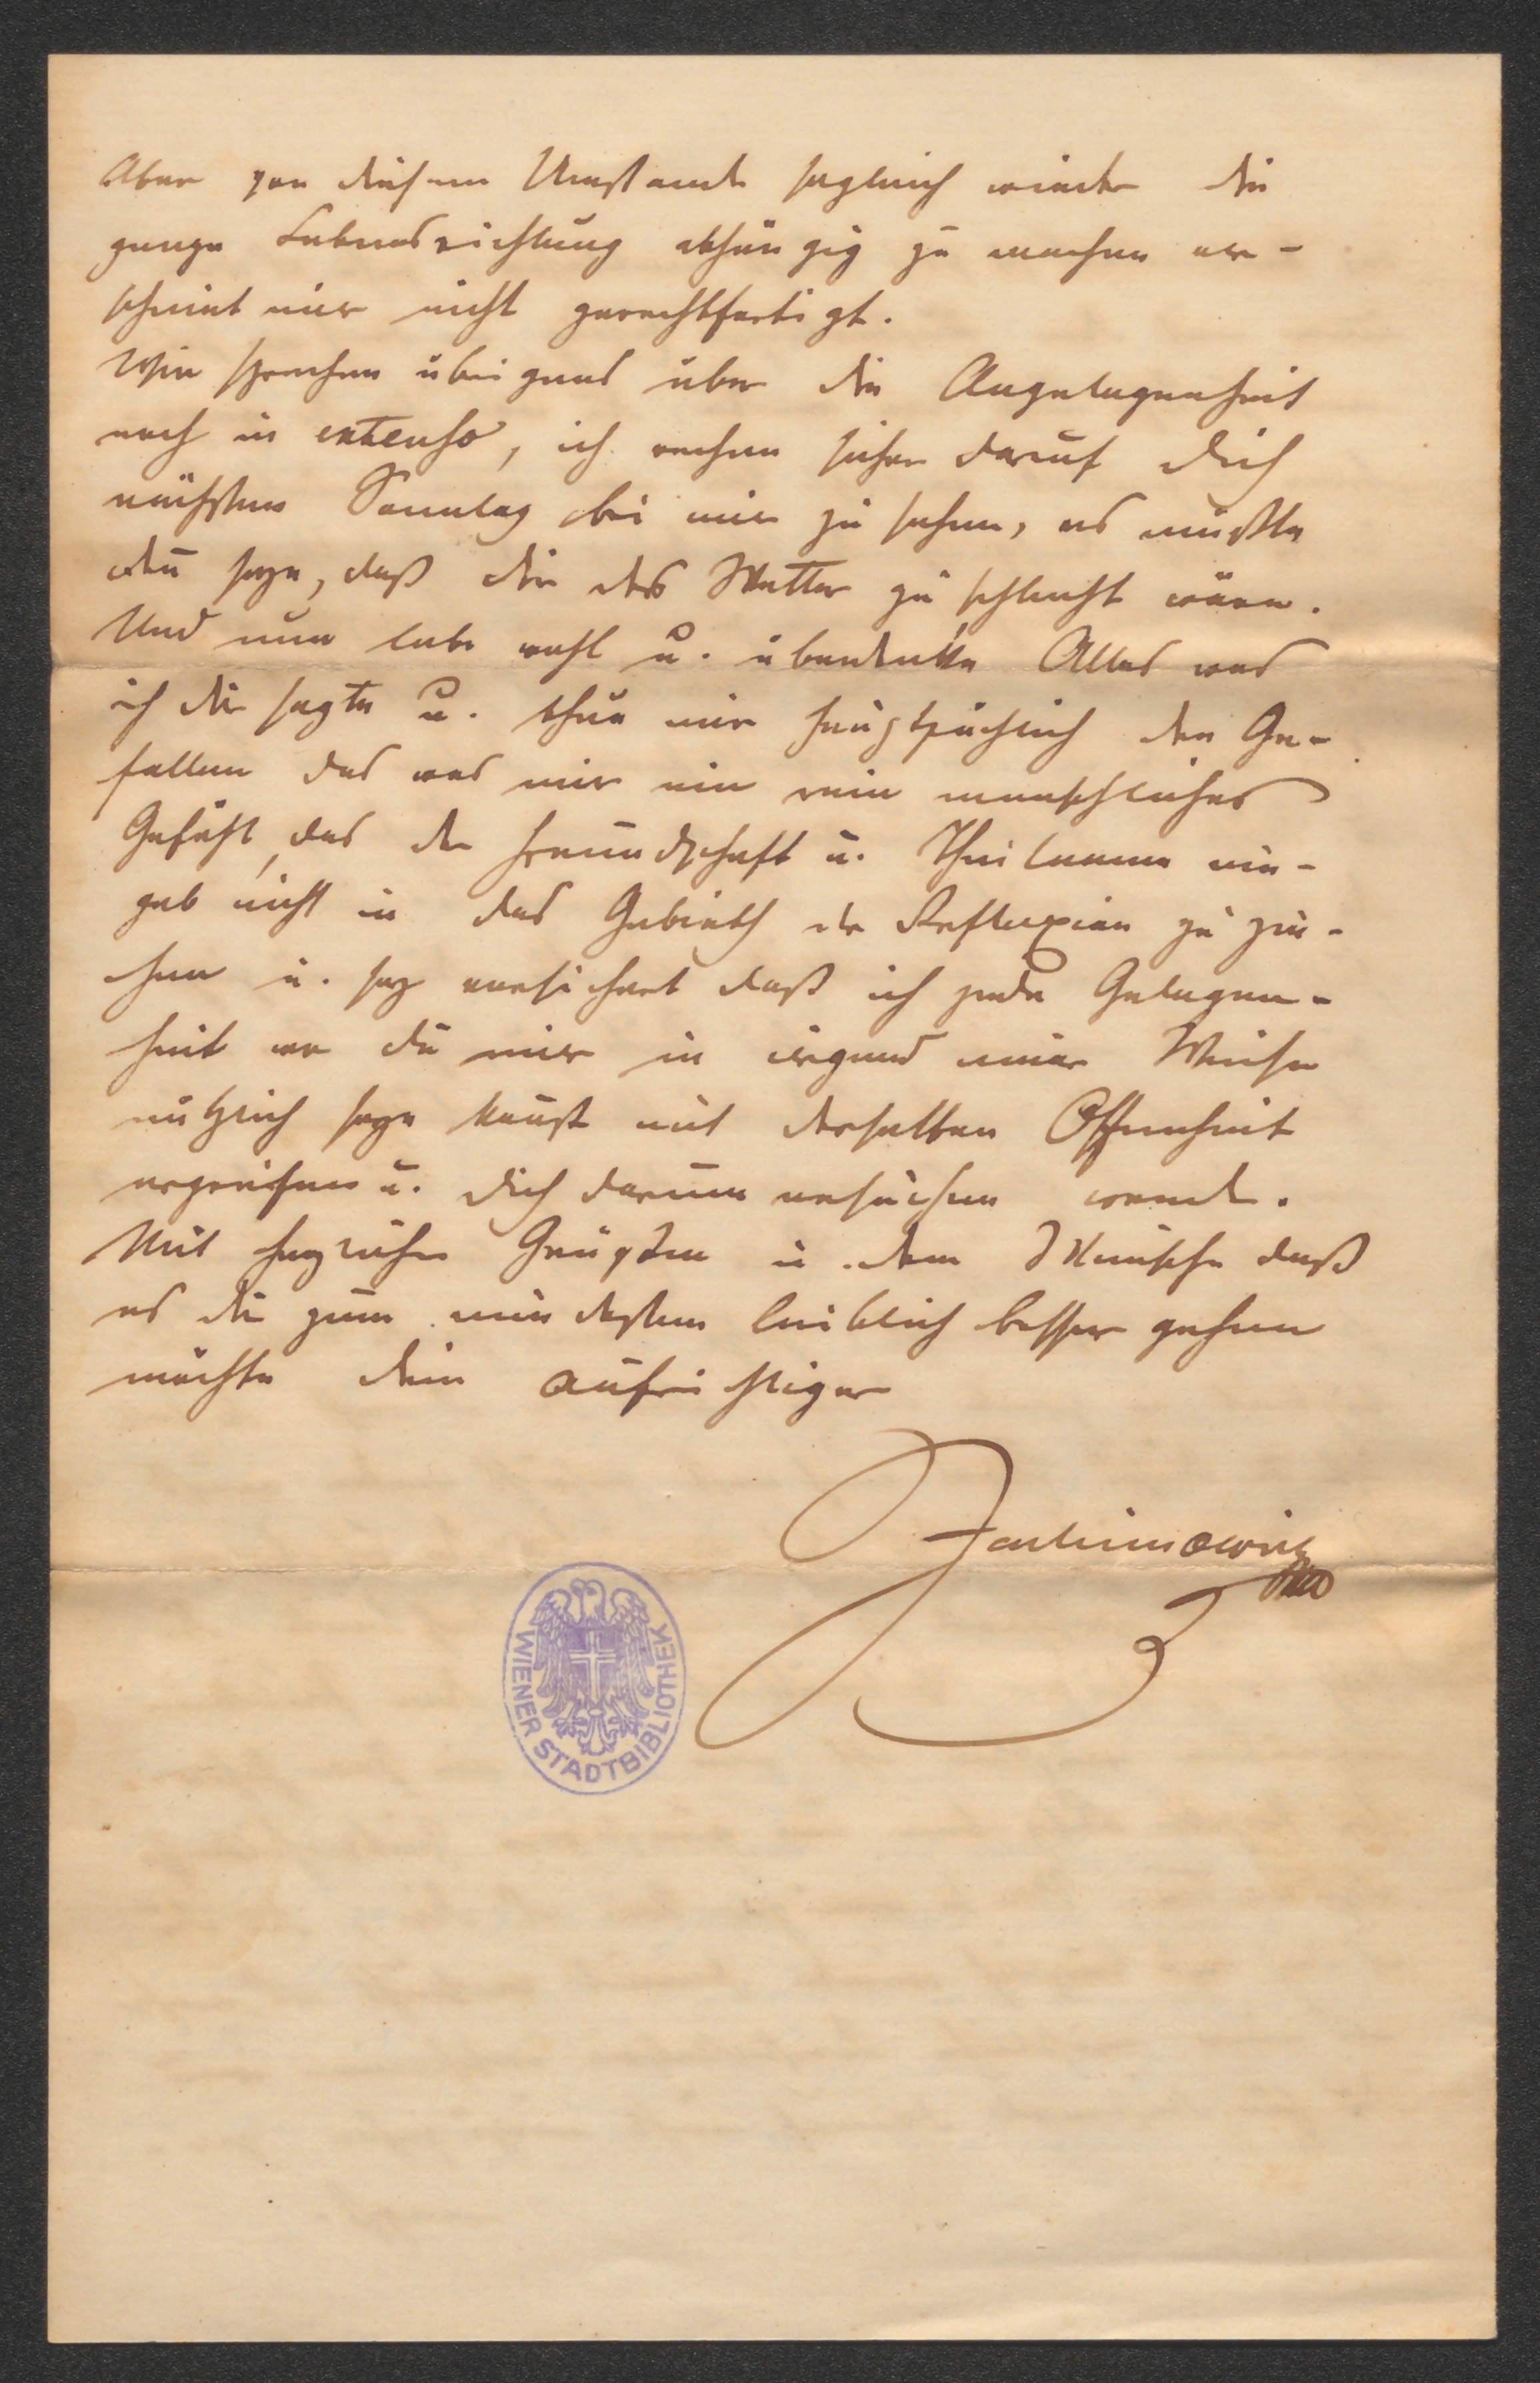 Aber von diesem Umstande sogleich wieder die
ganze Lebensrichtung abhängig zu machen er-
scheint mir nicht gerechtfertigt.
Wir sprechen übrigens über die Angelegenheit
noch in extenso, ich rechne sicher darauf dich
nächsten Sonntag bei mir zu sehen, es müßte
den seyn, daß dir das Wetter zu schlecht wäre.
Und nun lebe wohl u. überdenke Alles was
ich dir sagte u. thue mir hauptsächlich den Ge-
fallen das was mir ein rein menschliches
Gefühl, das der Freundschaft u. Theilname ein-
gab nicht in das Gebieth der Reflexion zu zie-
hen u. sey versichert daß ich jede Gelegen-
heit wo du mir in irgend einer Weise
nützlich seyn kanst mit derselben Offenheit
ergreifen u. dich darum ersuchen werde.
Mit herzlichen Grüßen u. dem Wunsche daß
es dir zum mindesten leiblich besser gehen
möchte dein aufrichtiger
Joachimowicz
WIENER STADTBIBLIOTHEK